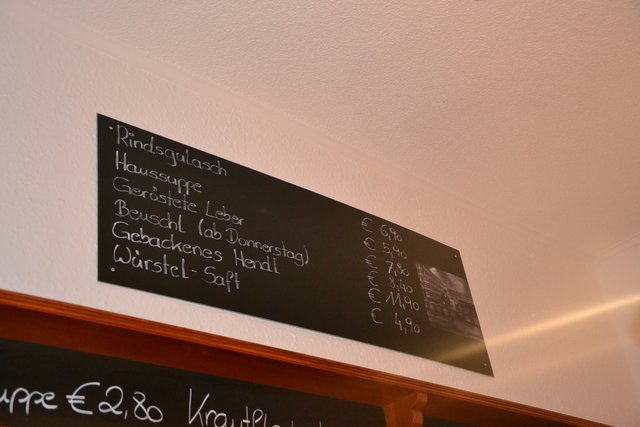 Rindsgulasch € 6,90
Haussuppe € 5,90
Geröstete Leber € 7,80
Beuschl (ab Donnerstag) € 8,40
Gebackenes Hendl € 11,90
Würstel-Saft € 4,90
€ 2,80